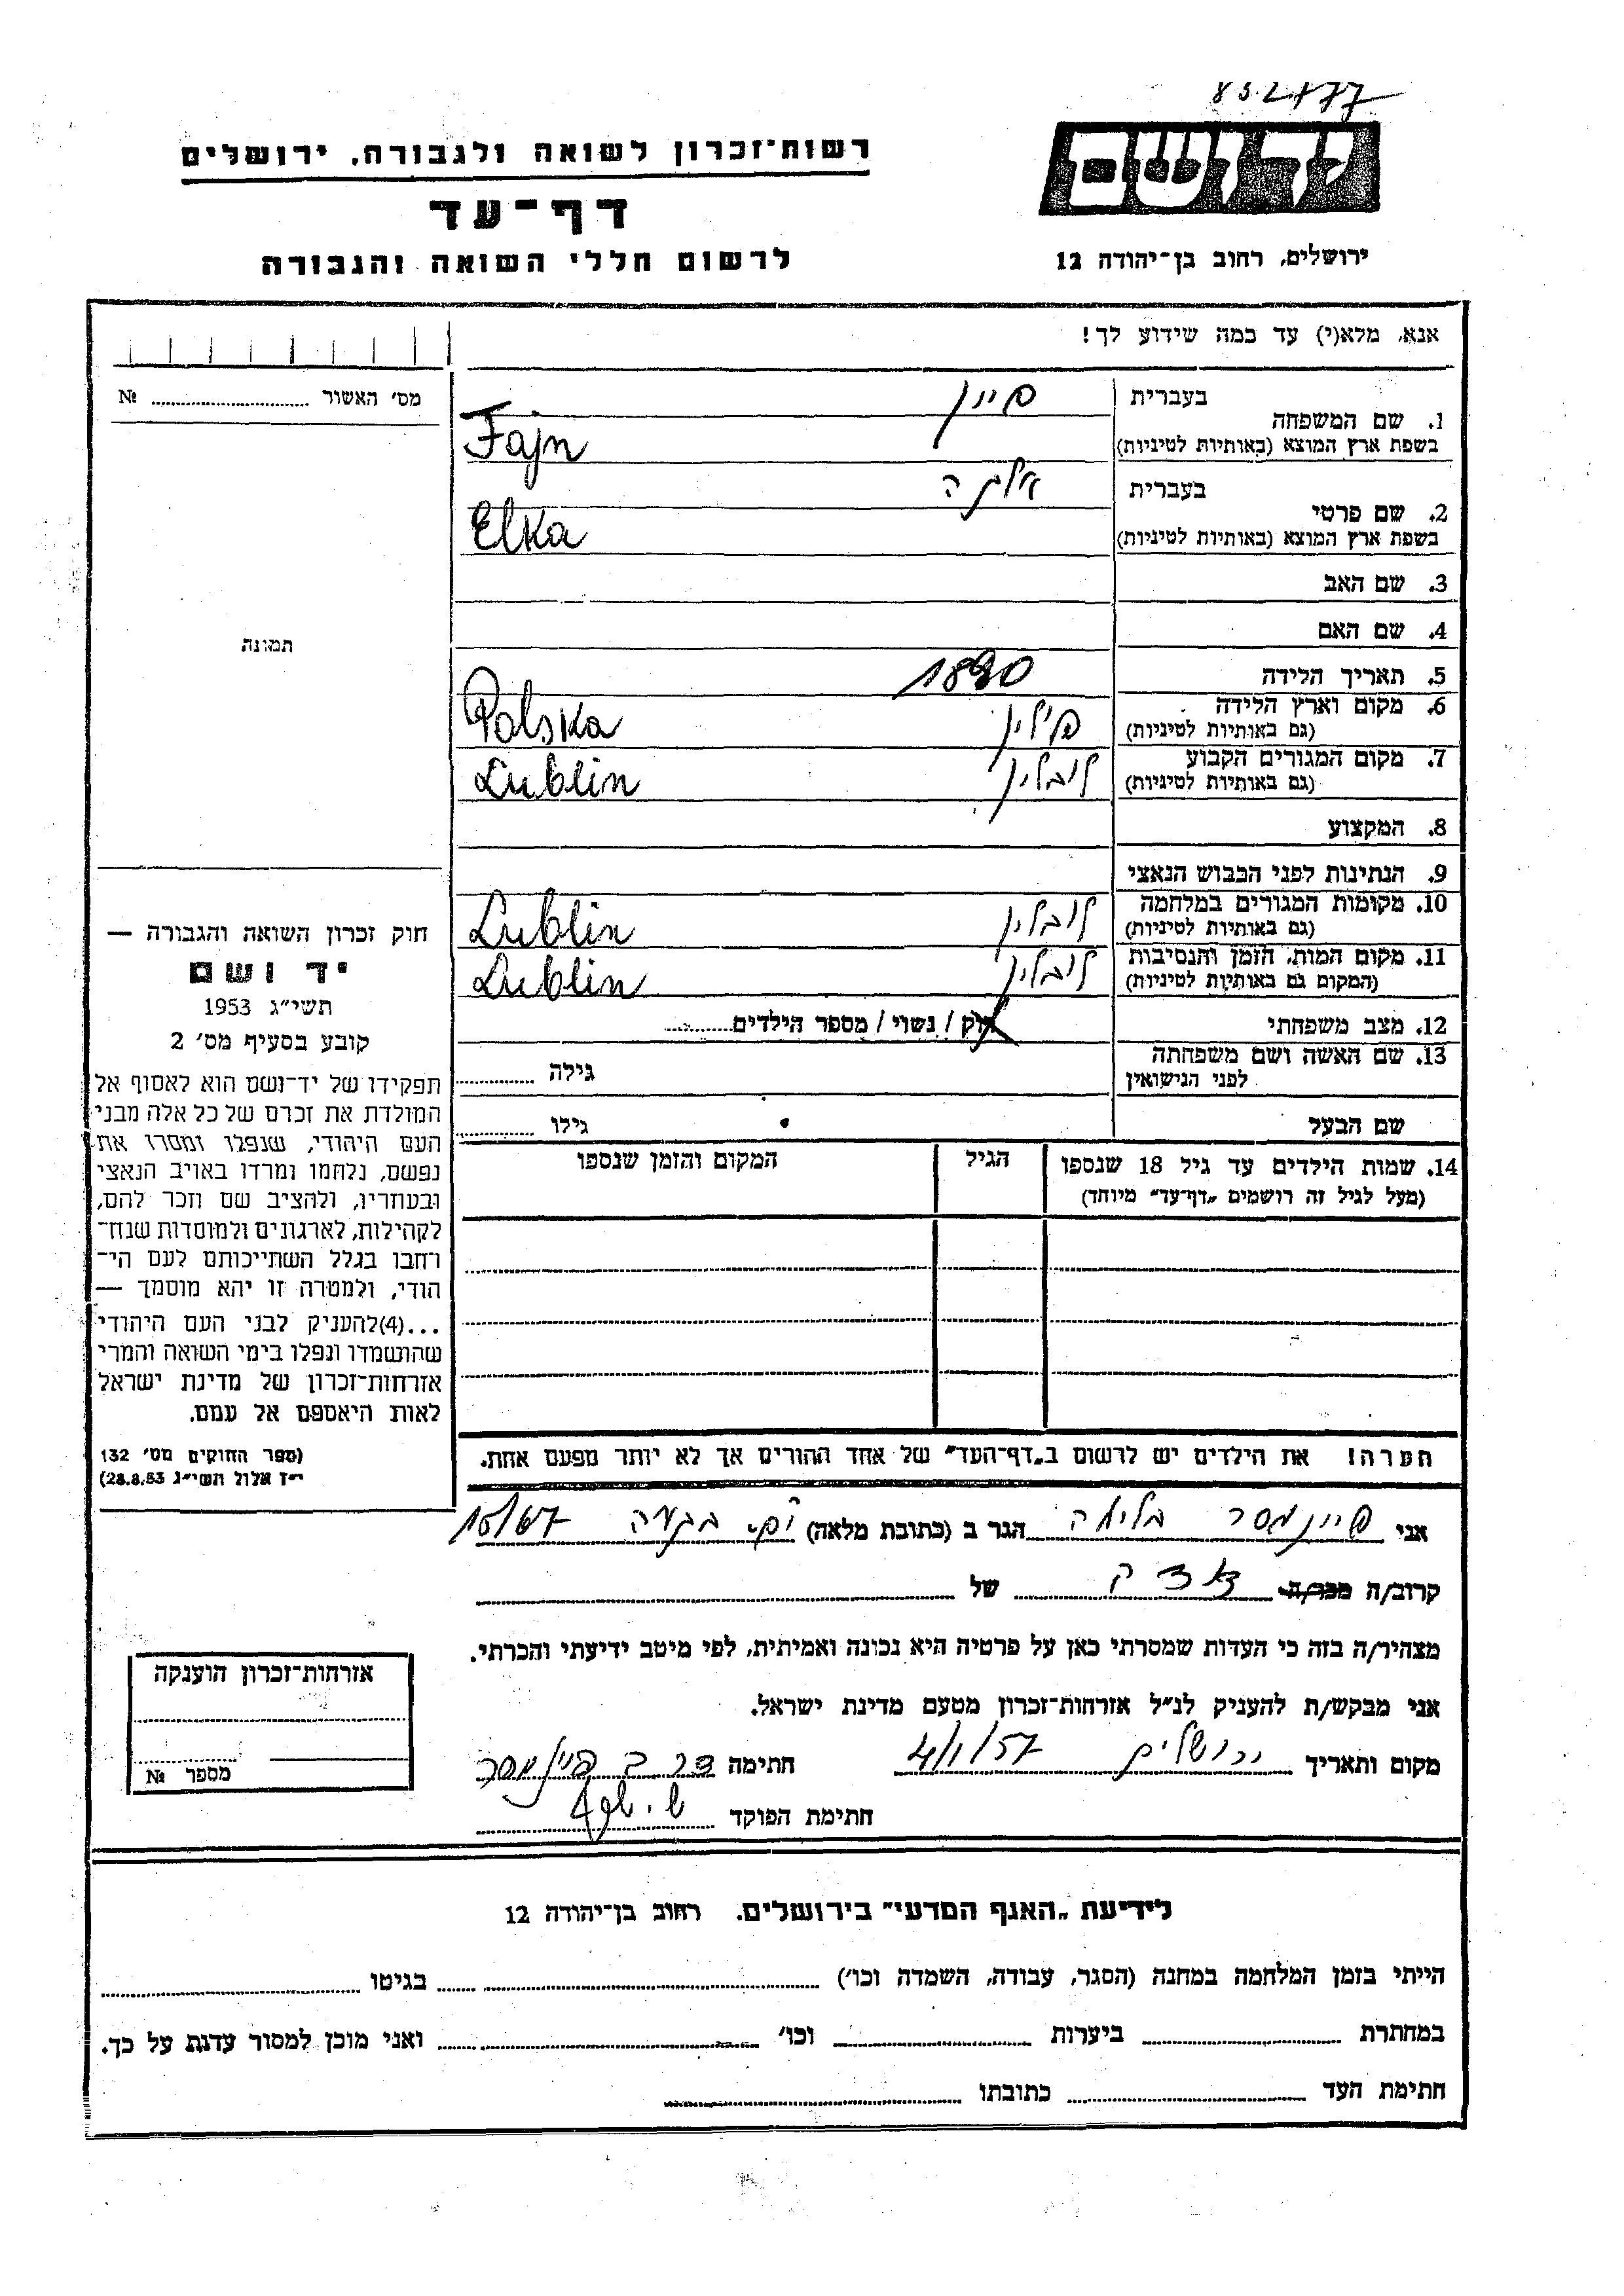 832477
רשות־זכרון לשואה ולגבורה, ירושלים
יד ושם
דף־עד
לרשום חללי השואה והגבורה
ירושלים, רחוב בן־יהודה 12
אנא, מלא(י) עד כמה שידוע לך!
מס׳ האשור № 
1. שם המשפחה
בעברית פיין
בשפת ארץ המוצא (באותיות לטיניות) Fajn
2. שם פרטי
בעברית אלקה
בשפת ארץ המוצא (באותיות לטיניות) Elka
3. שם האב
4. שם האם
תמונה
5. תאריך הלידה
6. מקום וארץ הלידה פולין Polska
(גם באותיות לטיניות)
7. מקום המגורים הקבוע לובלין Lublin
(גם באותיות לטיניות)
8. המקצוע
9. הנתינות לפני הכבוש הנאצי
10. מקומות המגורים במלחמה לובלין Lublin
(גם באותיות לטיניות)
11. מקום המות, הזמן והנסיבות לובלין Lublin
(המקום גם באותיות לטיניות)
12. מצב משפחתי רוק / נשוי / מספר הילדים
13. שם האשה ושם משפחתה גילה
לפני הנישואין
שם הבעל גילו
14. שמות הילדים עד גיל 18 שנספו הגיל המקום והזמן שנספו
(מעל לגיל זה רושמים „דף־עד״ מיוחד)
חוק זכרון השואה והגבורה —
יד ושם
תשי״ג 1953
קובע בסעיף מס׳ 2
תפקידו של יד־ושם הוא לאסוף אל
המולדת את זכרם של כל אלה מבני
העם היהודי, שנפלו ומסרו את
נפשם, נלחמו ומרדו באויב הנאצי
ובעוזריו, ולהציב שם וזכר להם,
לקהילות, לארגונים ולמוסדות שנח־
רבו בגלל השתייכותם לעם הי־
הודי, ולמטרה זו יהא מוסמך —
...(4)להעניק לבני העם היהודי
שהושמדו ונפלו בימי השואה והמרי
אזרחות־זכרון של מדינת ישראל
לאות היאספם אל עמם.
(ספר החוקים מס׳ 132
י״ז אלול תשי״ג 28.8.53)
הערה! את הילדים יש לרשום ב„דף־העד״ של אחד ההורים אך לא יותר מפעם אחת.
אני פיינמסר בלימה הגר ב (כתובת מלאה) 15/67
קרוב/ה מכר/ה של
מצהיר/ה בזה כי העדות שמסרתי כאן על פרטיה היא נכונה ואמיתית, לפי מיטב ידיעתי והכרתי.
אני מבקש/ת להעניק לנ״ל אזרחות־זכרון מטעם מדינת ישראל.
מקום ותאריך ירושלים 4/1/57 חתימה פיינמסר
חתימת הפוקד
אזרחות־זכרון הוענקה
מספר №
לידיעת „האגף המדעי״ בירושלים. רחוב בן־יהודה 12
הייתי בזמן המלחמה במחנה (הסגר, עבודה, השמדה וכו׳) בגיטו
במחתרת ביערות וכו׳ ואני מוכן למסור עדות על כך.
חתימת העד כתובתו